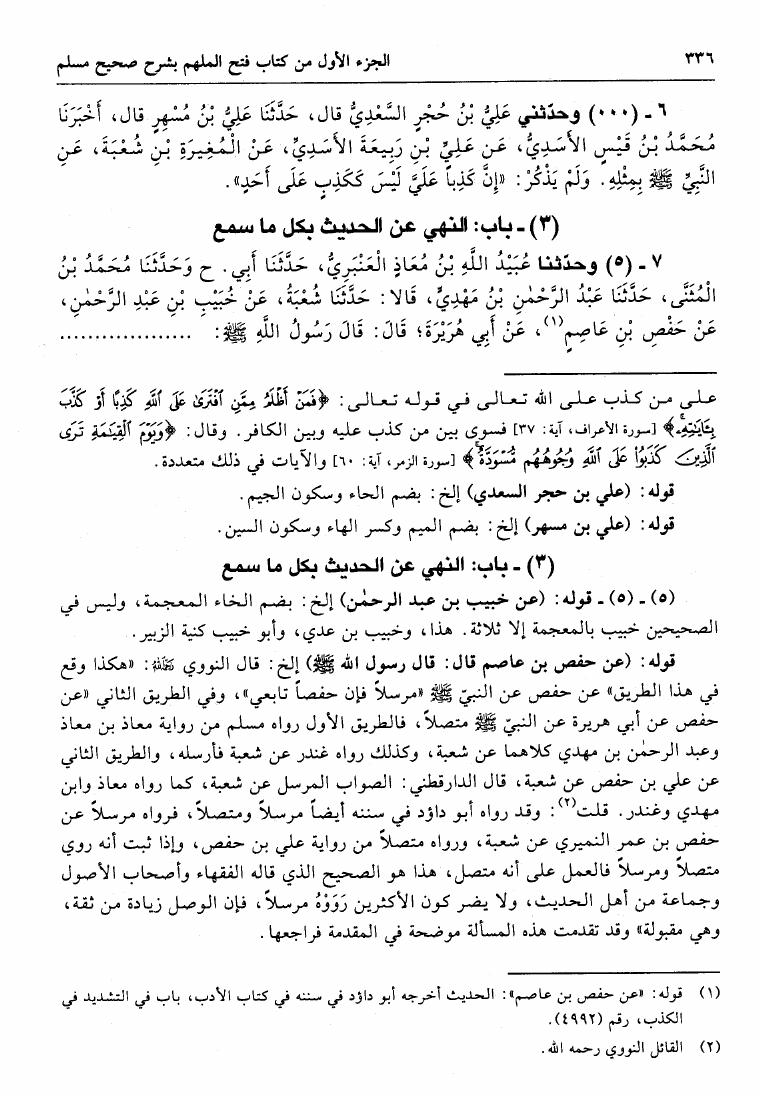 ٣٣٦ الجزء الأول من كتاب فتح الملهم بشرح صحيح مسلم
٦ ـ (٠٠٠) وحدّثني عَلِيُّ بْنُ حُجْرٍ السَّعْدِيُّ قال، حَدَّثَنَا عَلِيُّ بْنُ مُسْهِرٍ قال، أَخْبَرَنَا
مُحَمَّدُ بْنُ قَيْسٍ الأَسَدِيُّ، عَن عَلِيِّ بْنِ رَبِيعَةَ الأَسَدِيِّ، عَنْ الْمُغِيرَةِ بْنِ شُعْبَةَ، عَنِ
النَّبِيِّ ﷺ بِمِثْلِهِ. وَلَمْ يَذْكُرْ: «إِنَّ كَذِباً عَلَيَّ لَيْسَ كَكَذِبٍ عَلَى أَحَدٍ».
(٣) ـ باب: النهي عن الحديث بكل ما سمع
٧ ـ (٥) وحدّثنا عُبَيْدُ اللَّهِ بْنُ مُعَاذٍ الْعَنْبَرِيُّ، حَدَّثَنَا أَبِي. ح وَحَدَّثَنَا مُحَمَّدُ بْنُ
الْمُثَنَّى، حَدَّثَنَا عَبْدُ الرَّحْمٰنِ بْنُ مَهْدِيٍّ، قَالا: حَدَّثَنَا شُعْبَةُ، عَنْ خُبَيْبِ بْنِ عَبْدِ الرَّحْمٰنِ،
عَنْ حَفْصِ بْنِ عَاصِمٍ(١)، عَنْ أَبِي هُرَيْرَةَ؛ قَالَ: قَالَ رَسُولُ اللَّهِ ﷺ: ..................
علـى مـن كـذب عـلـى الله تعـالـى فـي قولـه تعـالـى: ﴿فَمَنْ أَظْلَمُ مِمَّنِ ٱفْتَرَىٰ عَلَى ٱللَّهِ كَذِبًا أَوْ كَذَّبَ
بِـَٔايَـٰتِهِۦٓ﴾ [سورة الأعراف، آية: ٣٧] فسوى بين من كذب عليه وبين الكافر. وقال: ﴿وَيَوْمَ ٱلْقِيَـٰمَةِ تَرَى
ٱلَّذِينَ كَذَبُوا۟ عَلَى ٱللَّهِ وُجُوهُهُم مُّسْوَدَّةٌ﴾ [سورة الزمر، آية: ٦٠] والآيات في ذلك متعددة.
قوله: (علي بن حجر السعدي) إلخ: بضم الحاء وسكون الجيم.
قوله: (علي بن مسهر) إلخ: بضم الميم وكسر الهاء وسكون السين.
(٣) ـ باب: النهي عن الحديث بكل ما سمع
(٥) ـ (٥) ـ قوله: (عن خبيب بن عبد الرحمٰن) إلخ: بضم الخاء المعجمة، وليس في
الصحيحين خبيب بالمعجمة إلا ثلاثة. هذا، وخبيب بن عدي، وأبو خبيب كنية الزبير.
قوله: (عن حفص بن عاصم قال: قال رسول الله ﷺ) إلخ: قال النووي رحمه الله: «هكذا وقع
في هذا الطريق» عن حفص عن النبيّ ﷺ «مرسلاً فإن حفصاً تابعي»، وفي الطريق الثاني «عن
حفص عن أبي هريرة عن النبيّ ﷺ متصلاً، فالطريق الأول رواه مسلم من رواية معاذ بن معاذ
وعبد الرحمٰن بن مهدي كلاهما عن شعبة، وكذلك رواه غندر عن شعبة فأرسله، والطريق الثاني
عن علي بن حفص عن شعبة، قال الدارقطني: الصواب المرسل عن شعبة، كما رواه معاذ وابن
مهدي وغندر. قلت(٢): وقد رواه أبو داؤد في سننه أيضاً مرسلاً ومتصلاً، فرواه مرسلاً عن
حفص بن عمر النميري عن شعبة، ورواه متصلاً من رواية علي بن حفص، وإذا ثبت أنه روي
متصلاً ومرسلاً فالعمل على أنه متصل، هذا هو الصحيح الذي قاله الفقهاء وأصحاب الأصول
وجماعة من أهل الحديث، ولا يضر كون الأكثرين رَوَوْهُ مرسلاً، فإن الوصل زيادة من ثقة،
وهي مقبولة» وقد تقدمت هذه المسألة موضحة في المقدمة فراجعها.
(١) قوله: «عن حفص بن عاصم»: الحديث أخرجه أبو داؤد في سننه في كتاب الأدب، باب في التشديد في
الكذب، رقم (٤٩٩٢).
(٢) القائل النووي رحمه الله.